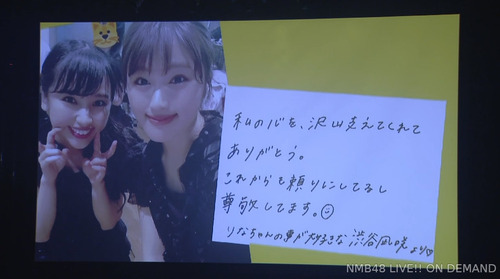 私の心を、沢山支えてくれて
ありがとう。
これからも頼りにしてるし
尊敬してます。
りなちゃんの事が大好きな 渋谷凪咲より♡
NMB48 LIVE!! ON DEMAND